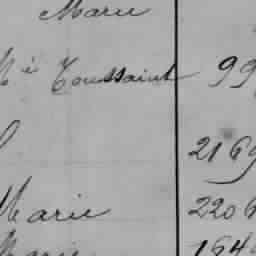 Marie
Mie Toussaint 99
2169
Marie 2206
Marie 164